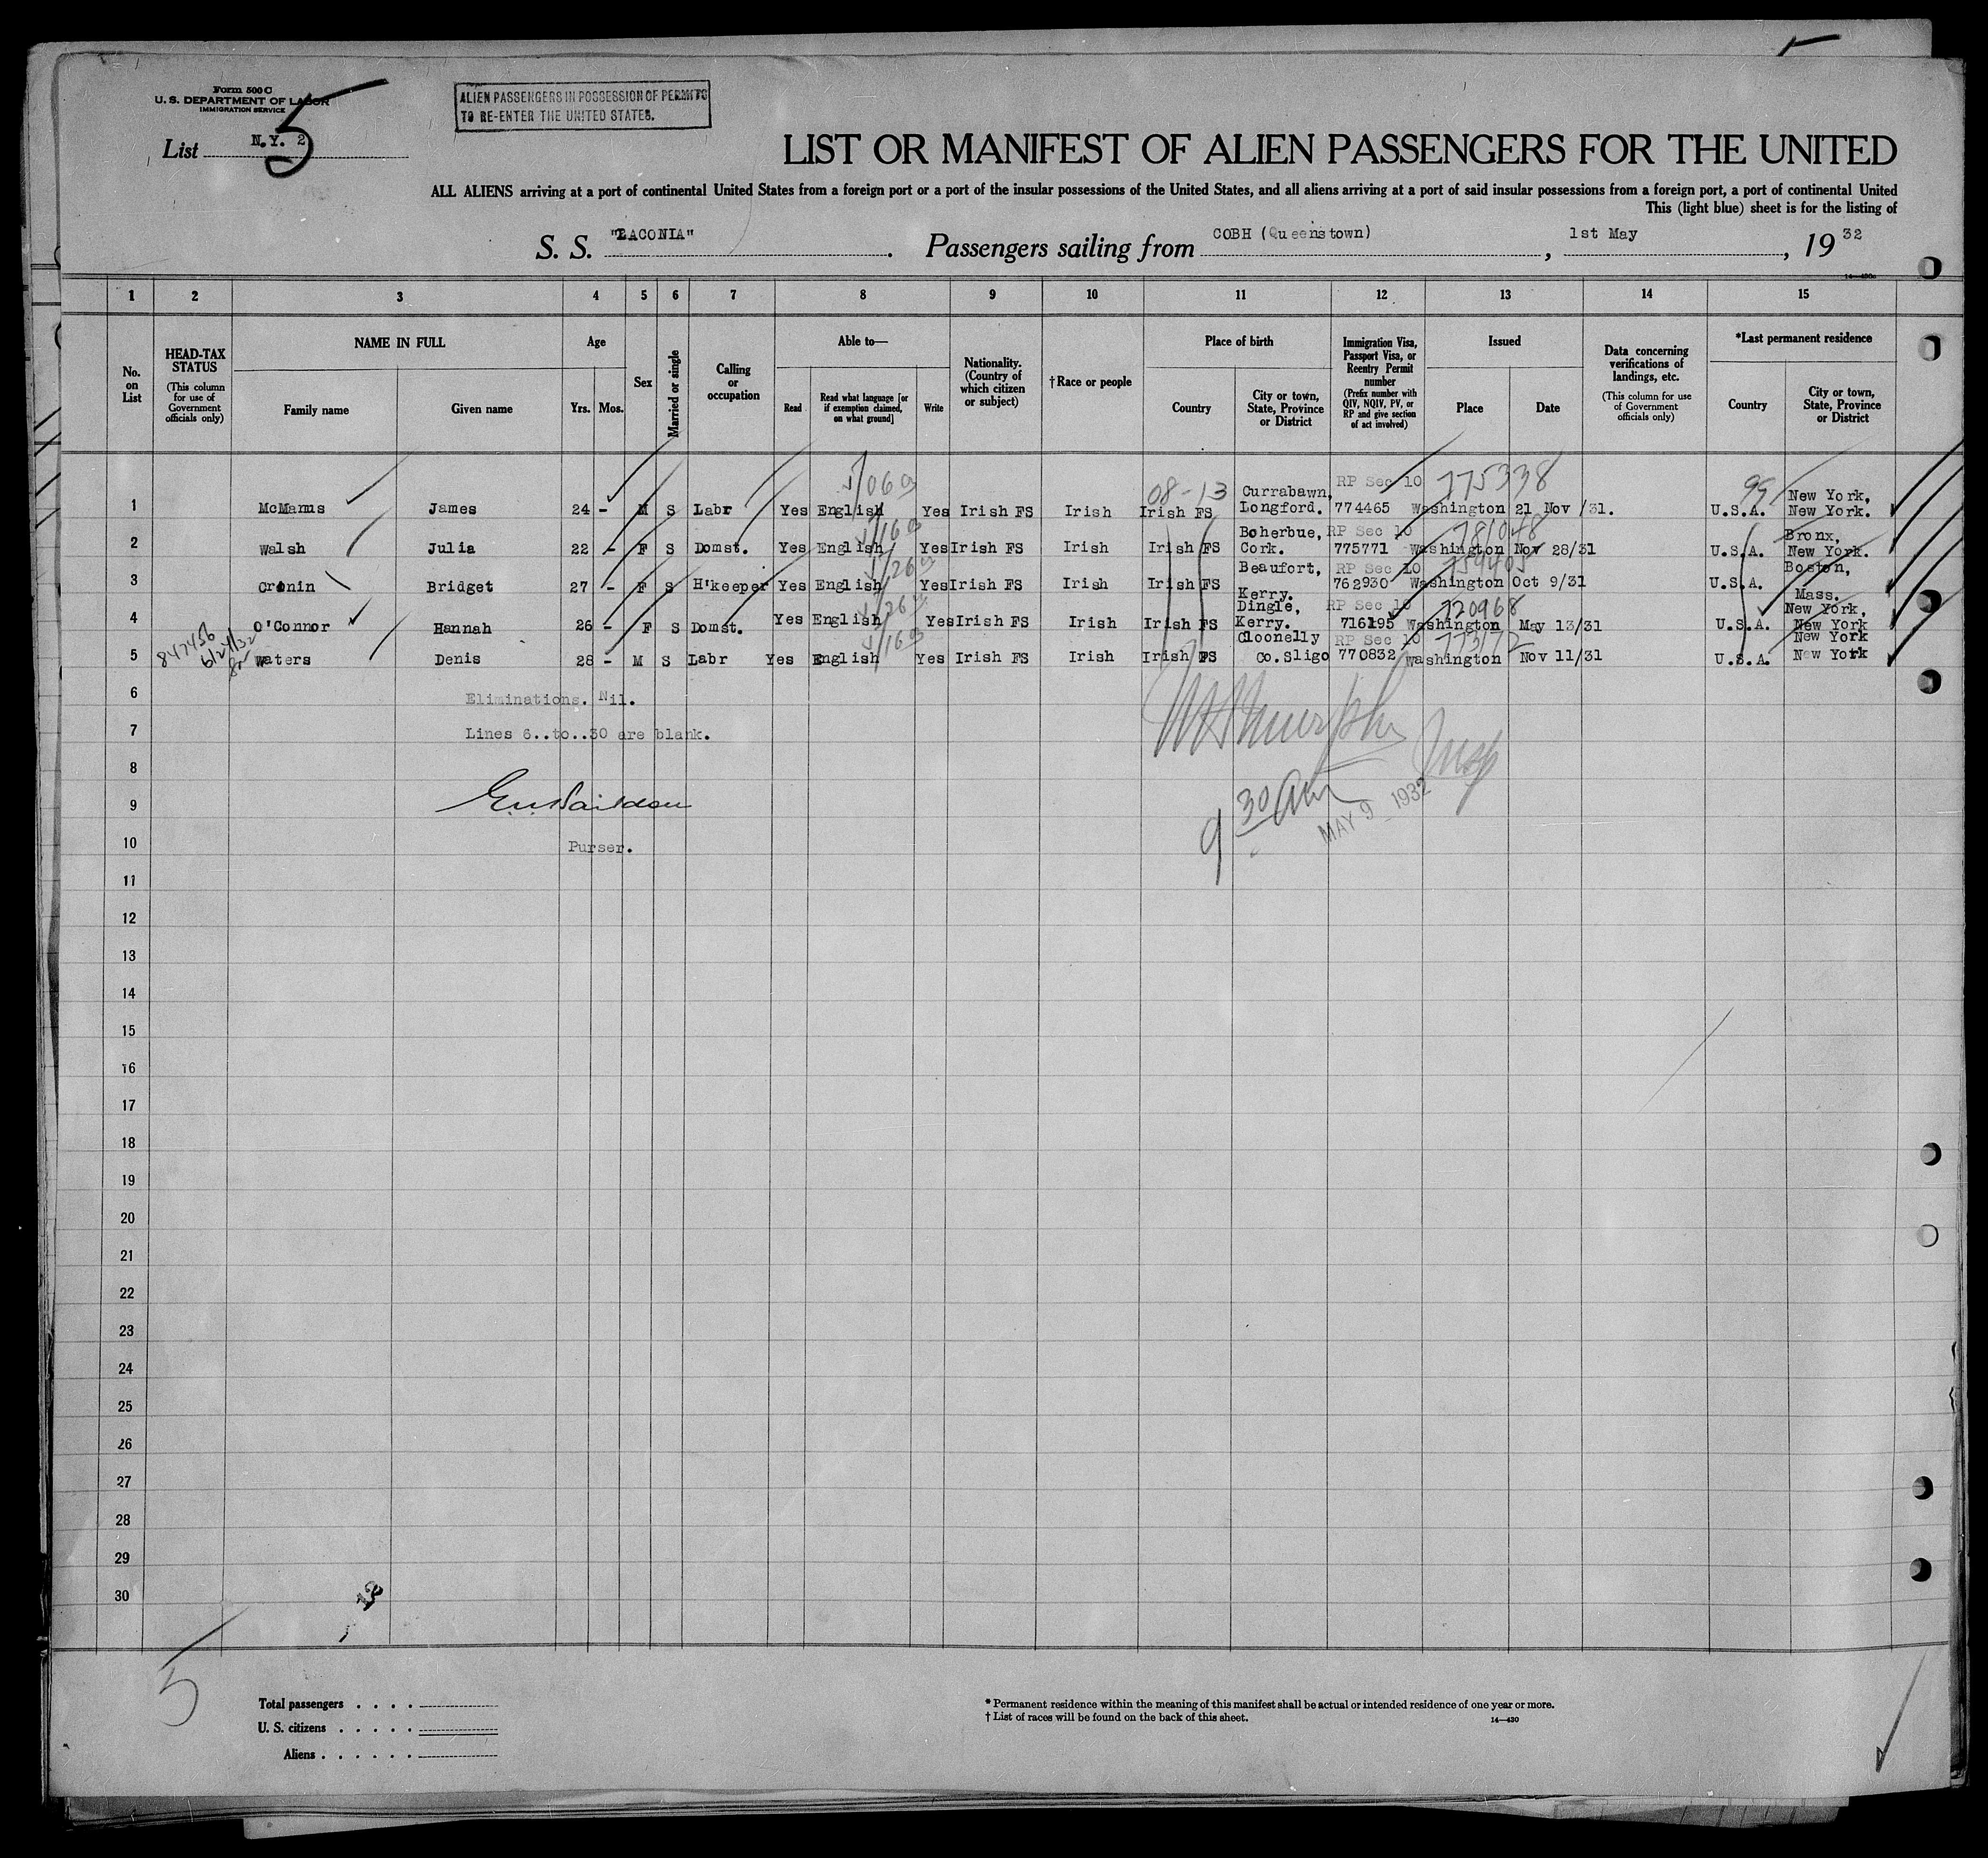 Form 500 C
U. S. DEPARTMENT OF LABOR
IMMIGRATION SERVICE
List N.Y. 2 5
ALIEN PASSENGERS IN POSSESSION OF PERMITS
TO RE-ENTER THE UNITED STATES.
LIST OR MANIFEST OF ALIEN PASSENGERS FOR THE UNITED
ALL ALIENS arriving at a port of continental United States from a foreign port or a port of the insular possessions of the United States, and all aliens arriving at a port of said insular possessions from a foreign port, a port of continental United
This (light blue) sheet is for the listing of
S. S. "LACONIA". Passengers sailing from COBH (Queenstown), 1st May, 19 32
14—430a
1 2 3 4 5 6 7 8 9 10 11 12 13 14 15
No. on List
HEAD-TAX STATUS (This column for use of Government officials only)
NAME IN FULL
Family name Given name
Age
Yrs. Mos.
Sex
Married or single
Calling or occupation
Able to—
Read
Read what language [or if exemption claimed, on what ground]
Write
Nationality. (Country of which citizen or subject)
†Race or people
Place of birth
Country
City or town, State, Province or District
Immigration Visa, Passport Visa, or Reentry Permit number (Prefix number with QIV, NQIV, PV, or RP and give section of act involved)
Issued
Place Date
Data concerning verifications of landings, etc. (This column for use of Government officials only)
*Last permanent residence
Country
City or town, State, Province or District
08-13 Currabawn, RP Sec 10 775338 99 New York,
1 McManus James 24 - M S Labr Yes English Yes Irish FS Irish Irish FS Longford. 774465 Washington 21 Nov /31. U.S.A. New York.
Boherbue, RP Sec 10 781048 Bronx,
2 Walsh Julia 22 - F S Domst. Yes English Yes Irish FS Irish Irish FS Cork. 775771 Washington Nov 28/31 U.S.A. New York.
Beaufort, RP Sec 10 759405 Boston,
3 Cronin Bridget 27 - F S H'keeper Yes English Yes Irish FS Irish Irish FS Kerry. 762930 Washington Oct 9/31 U.S.A. Mass.
Dingle, RP Sec 10 720968 New York,
4 O'Connor Hannah 26 - F S Domst. Yes English Yes Irish FS Irish Irish FS Kerry. 716195 Washington May 13/31 U.S.A. New York
847456 6/24/32 Cloonelly RP Sec 10 773172 New York
5 Waters Denis 28 - M S Labr Yes English Yes Irish FS Irish Irish FS Co.Sligo 770832 Washington Nov 11/31 U.S.A. New York
6 Eliminations. Nil.
7 Lines 6..to..30 are blank.
8
9
Murphy Insp
9 30 am
MAY 9 1932
10 Purser.
11
12
13
14
15
16
17
18
19
20
21
22
23
24
25
26
27
28
29
30
5
Total passengers . . . .
U. S. citizens . . . . .
Aliens . . . . . .
* Permanent residence within the meaning of this manifest shall be actual or intended residence of one year or more.
† List of races will be found on the back of this sheet.
14—430